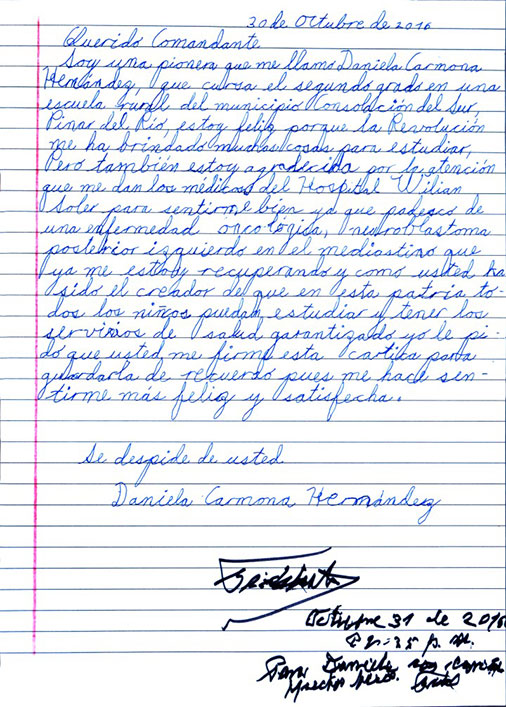 30 de Octubre de 2016
Querido Comandante
Soy una pionera que me llamo Daniela Carmona
Hernández, que cursa el segundo grado en una
escuela rural del municipio Consolación del Sur,
Pinar del Río, estoy feliz porque la Revolución
me ha brindado muchas cosas para estudiar,
Pero también estoy agradecida por la atención
que me dan los médicos del Hospital Wilian
Soler para sentirme bien ya que padesco de
una enfermedad oncológica, neuroblastoma
posterior izquierdo en el mediastino que
ya me estoy recuperando y como usted ha
sido el creador de que en esta patria to-
dos los niños puedan estudiar y tener los
servicios de salud garantizado yo le pi-
do que usted me firme esta cartica para
guardarla de recuerdo pues me hace sen-
tirme más feliz y satisfecha.
Se despide de usted
Daniela Carmona Hernández
Octubre 31 de 2016
p.m.
Para Daniela con